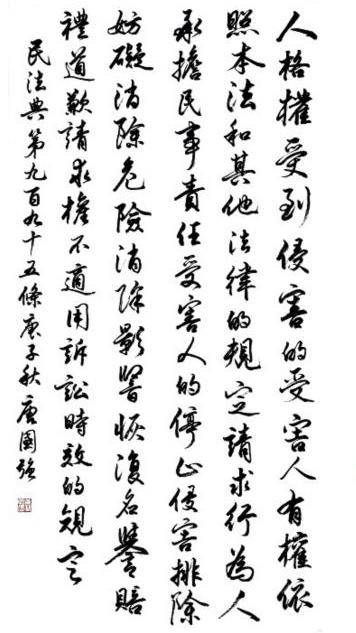 人格權受到侵害的受害人有權依
照本法和其他法律的規定請求行為人
承擔民事責任受害人的停止侵害排除
妨礙消除危險消除影響恢復名譽賠
禮道歉請求權不適用訴訟時效的規定
民法典第九百九十五條庚子秋唐國強